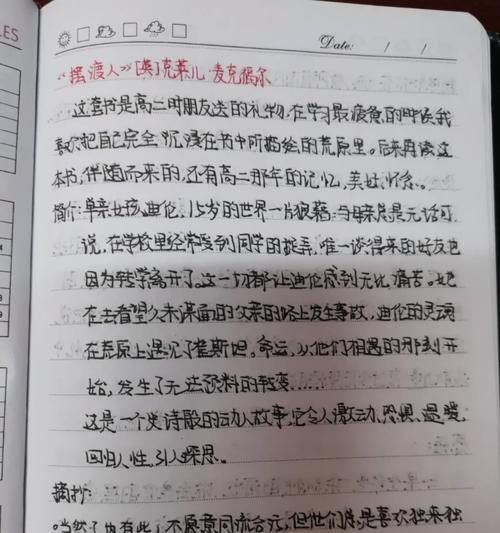 LES
Date: / /
“摆渡人”[英]克莱儿·麦克福尔
这套书是高二时朋友送的礼物,在学习最疲惫的时候我
喜欢把自己完全沉浸在书中所描绘的荒原里。后来再读这
本书,伴随而来的,还有高二那年的记忆,美好,怀念。
简介:单亲女孩迪伦,15岁的世界一片狼藉:与母亲总是无话可
说,在学校里经常受到同学的捉弄,唯一谈得来的好友也
因为转学离开了。这一切都让迪伦感到无比痛苦。她
在去看望久未谋面的父亲的路上发生事故,迪伦的灵魂
在荒原上遇见了崔斯坦。命运,从他们相遇的那刻开
始,发生了无法预料的转变……
这是一个史诗般的动人故事,它令人激动、恐惧、温暖,
回归人性,引人深思。
摘抄:
当然了也有些人不愿意同流合污,但他们总是喜欢独来独